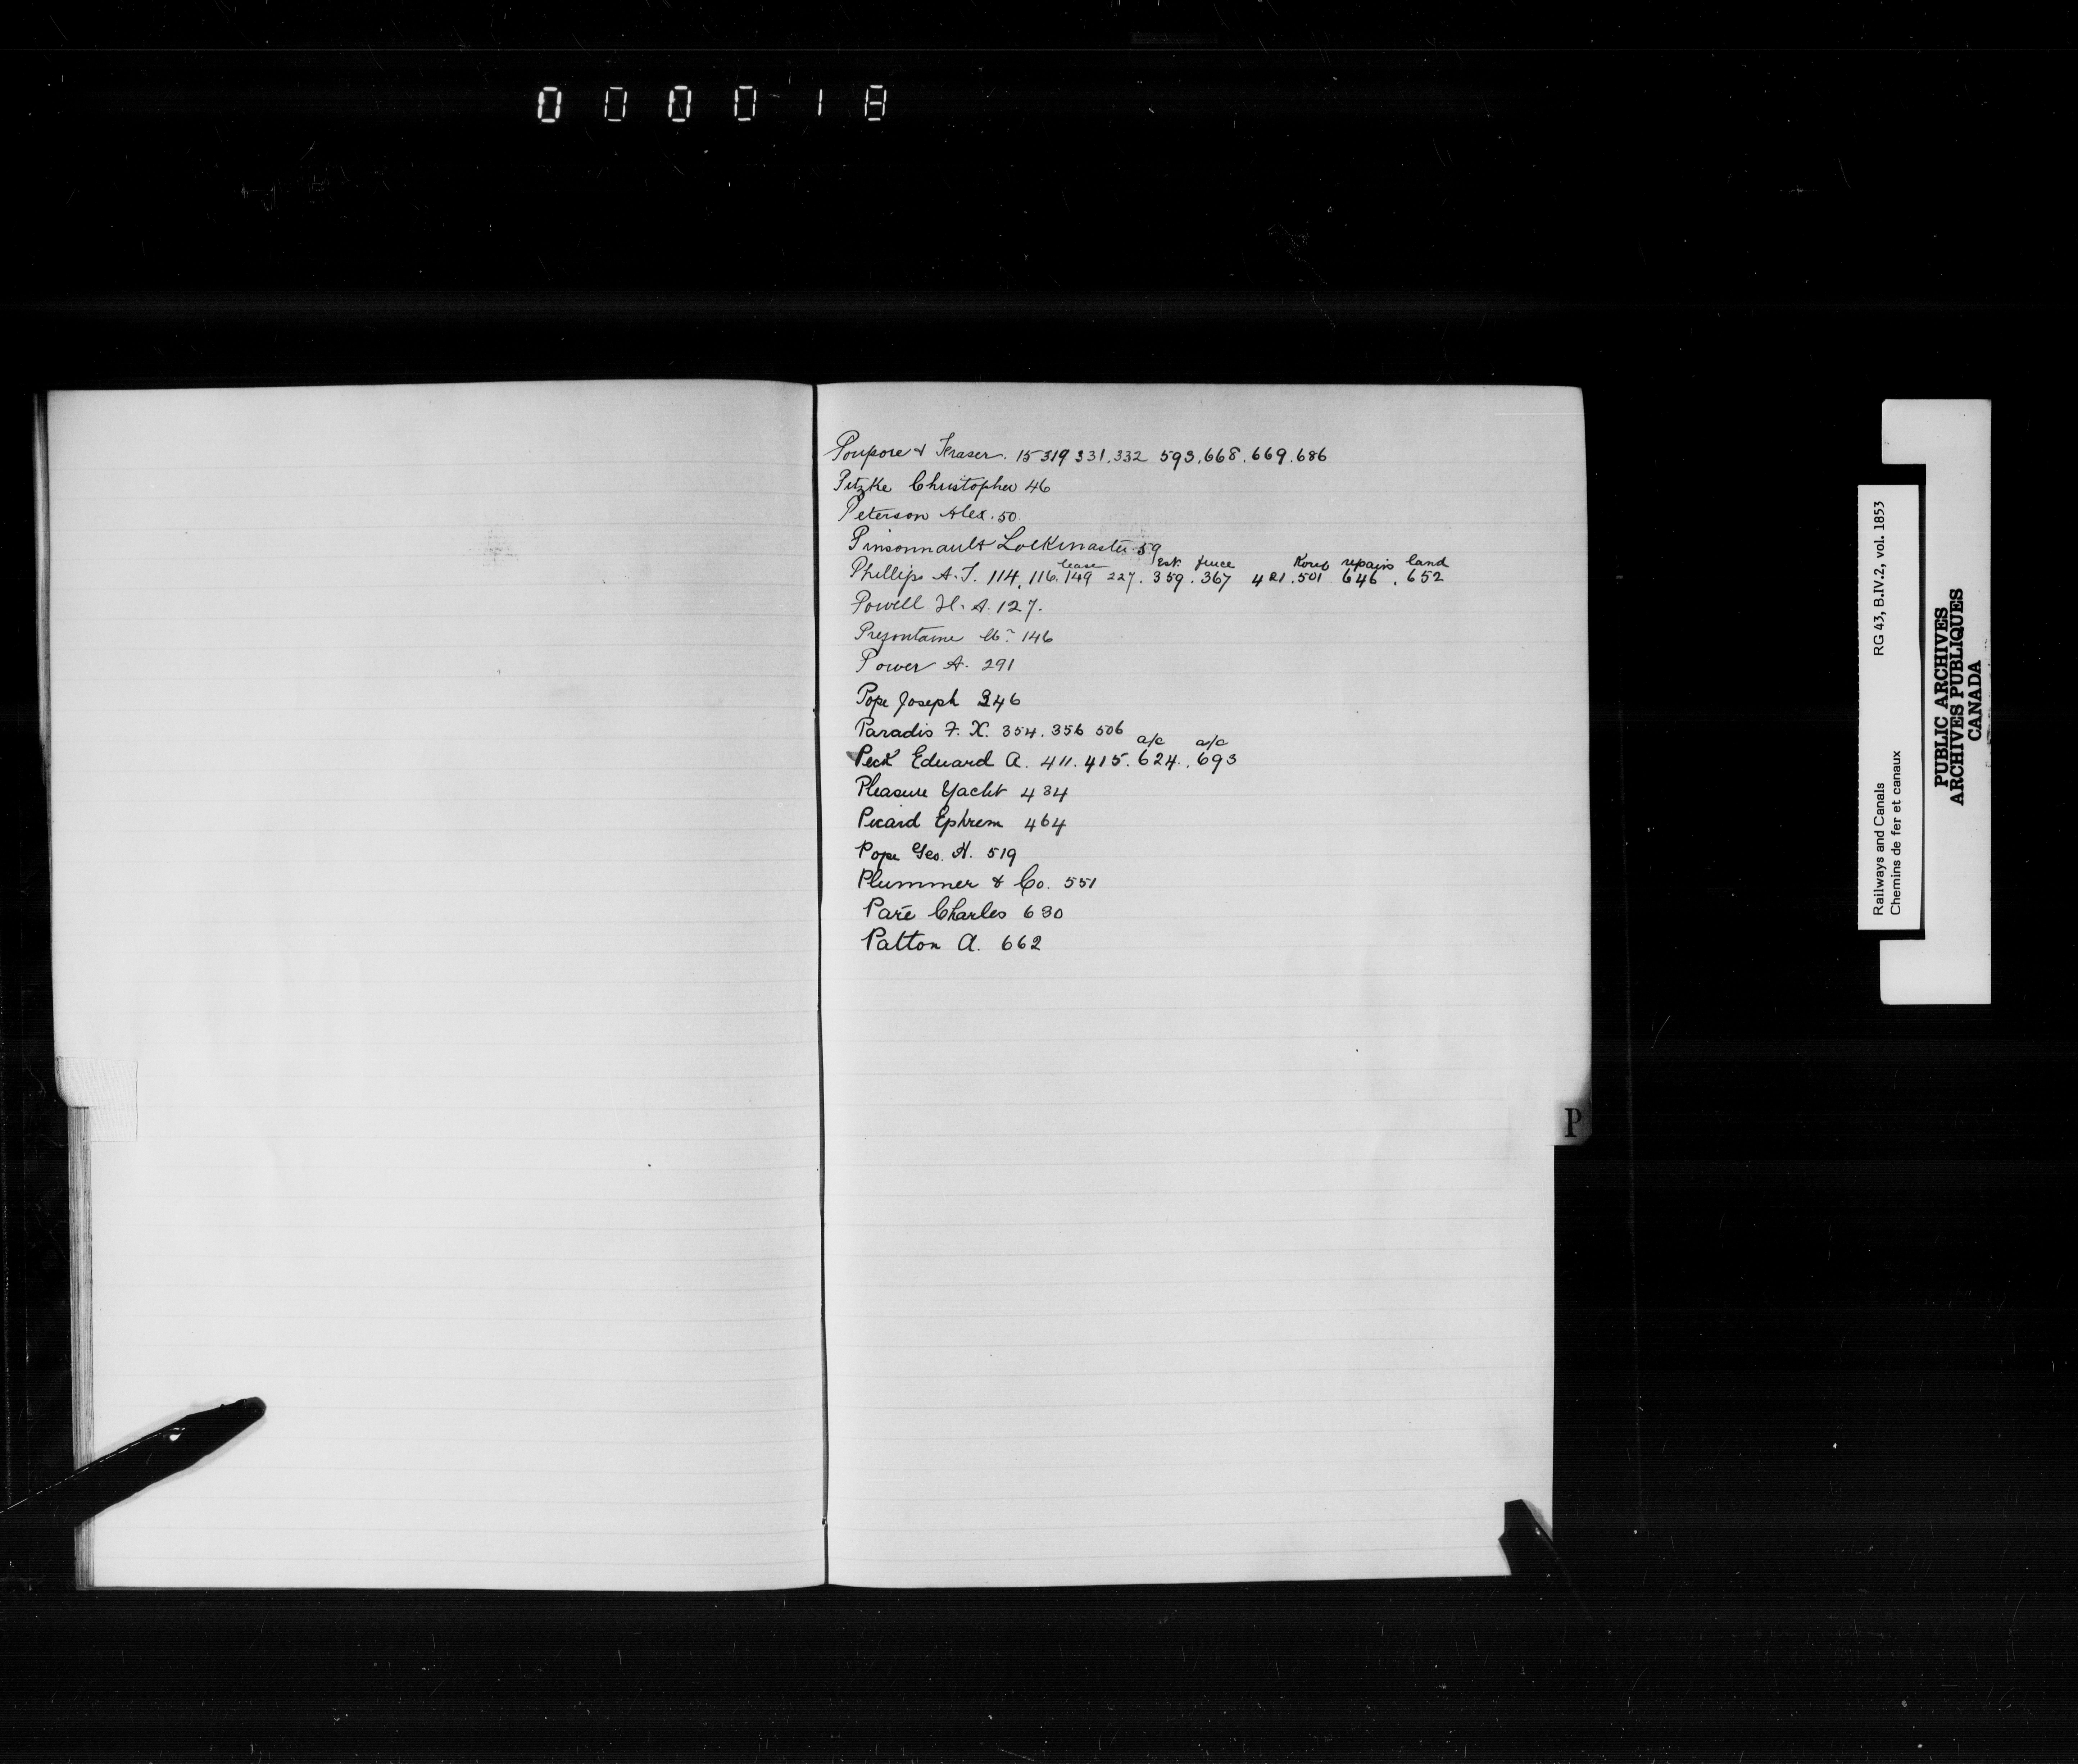 000018
Poupore & Fraser. 15 319 331, 332 593, 668, 669. 686
Pitzke Christopher 46
Peterson Alex. 50
Pinsonnault Lockmaster 59
lease est. fence repairs land
Phillips A. J. 114, 116. 149 227. 359. 367 421. 501 646. 652
Powell H. A. 127.
Prefontaine 146
Power A. 291
Pope Joseph 346
Paradis F. X. 354. 356 506
a/c a/c
Peck Edward A. 411. 415. 624., 693
Pleasure Yacht 434
Picard Ephrem 464
Pope Geo. H. 519
Plummer & Co. 551
Paré Charles 630
Patton A. 662
P
Railways and Canals RG 43, B.IV.2, vol. 1853
Chemins de fer et canaux
PUBLIC ARCHIVES
ARCHIVES PUBLIQUES
CANADA